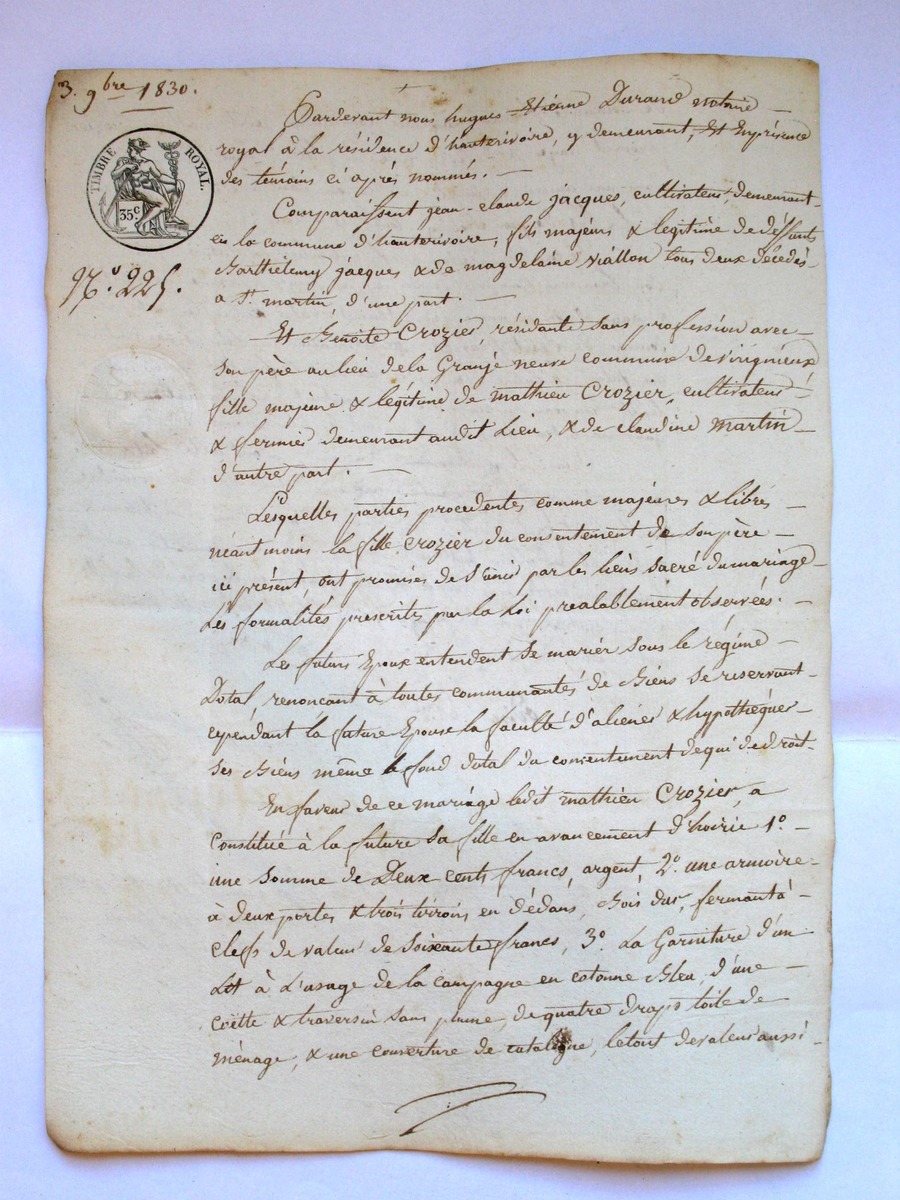 3. 9bre 1830.
TIMBRE ROYAL.
35 c
N.o 225.
Pardevant nous hugues Etienne Durand notaire
royal à la résidence d'hauterivoire, y demeurant, Et En présence
des témoins ci après nommés.
Comparaissent jean-claude jacques, cultivateur, demeurant
en la commune d'hauterivoire, fils majeur & legitime de deffunts
Barthelemy jacques & de magdelaine viallon tous deux décédés
a St. martin, d'une part.
Et Benoite Crozier, résidante sans profession avec
son père au lieu de la Granje neuve commune de virigneux
fille majeure & légitime de mathieu Crozier, cultivateur
& fermier demeurant audit Lieu, & de claudine martin
d'autre part.
Lesquelles parties procedentes comme majeures & libres
néantmoins la fille Crozier du consentement de son père
ici présent, ont promises de s'unir par les liens sacré du mariage
Les formalités prescrites par la Loi prealablement observées.
Les futurs Epoux entendent se marier sous le régime
Dotal, renoncant à toutes communautés de Biens se reservant
cependant la future Epouse la faculté d'aliéner & hypothéquer
ses Biens même le fond dotal du consentement de qui de droit.
En faveur de ce mariage ledit mathieu Crozier, a
Constitué à la future sa fille en avancement d'hoirie 1o.
une somme de Deux cents francs, argent, 2o. une armoire
à deux portes & trois tiroirs en dédans, Bois dur, fermant à
clefs de valeur de soixante francs, 3o. La Garniture d'un
Lit à L'usage de la campagne en cotonne Bleu, d'une
coëtte & traversin sans plume, de quatre draps toile de
ménage, & une couverture de catalogne, le tout de valeur aussi